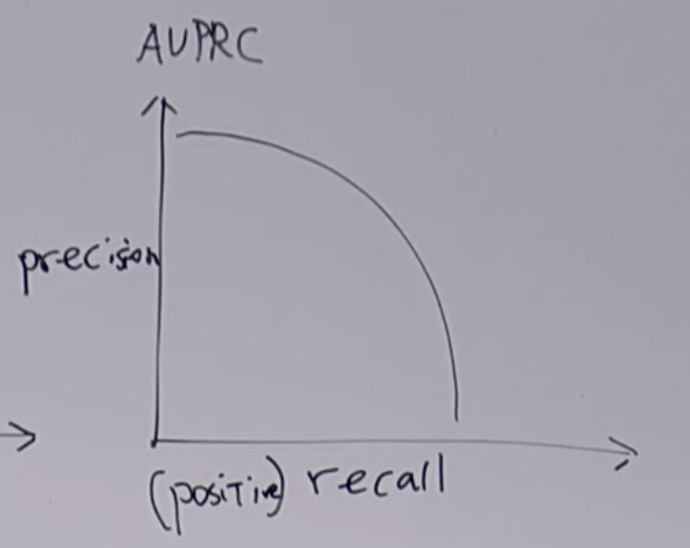 AUPRC
precision
(positive) recall